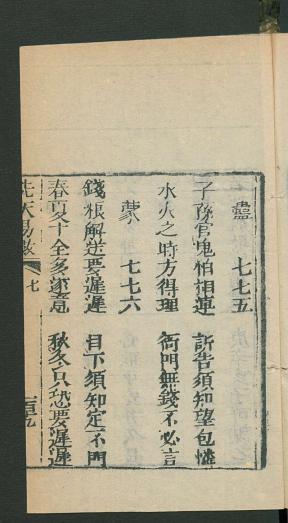 蠱 七七五
子孫官鬼怕相連 訴告須知望包憐
水火之時方得理 衙門無錢不必言
蒙 七七六
錢粮解送要遲遲 目下須知定不
春夏十全多 秋冬只恐要遲遲
先天易數 七